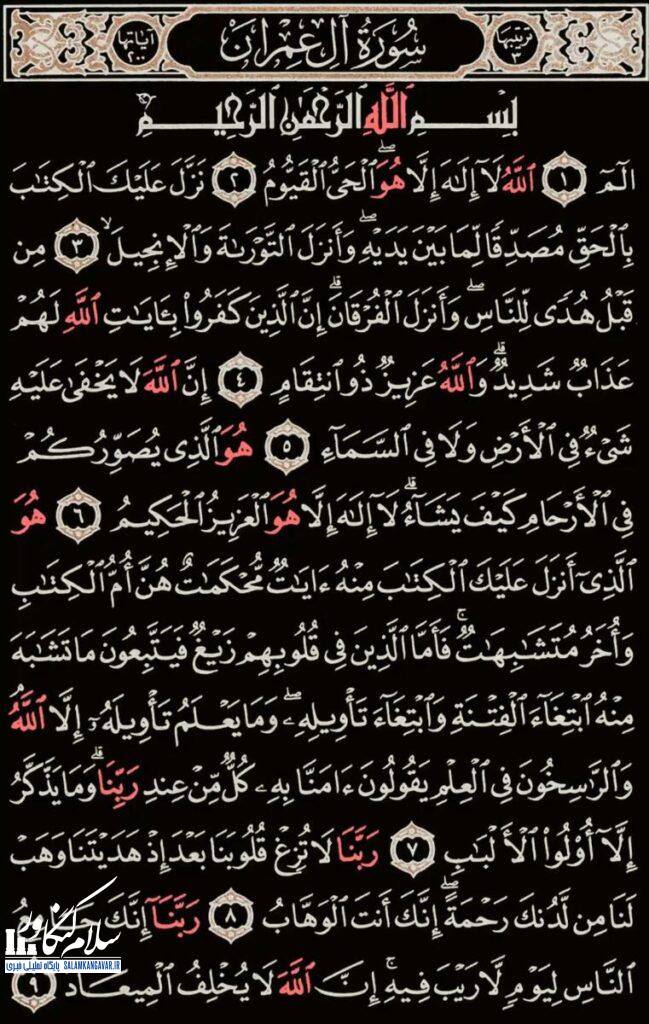 ترتيبها ٣ سُورَةُ آلِ عِمۡرَانَ آياتها ٢٠٠
بِسۡمِ ٱللَّهِ ٱلرَّحۡمَٰنِ ٱلرَّحِيمِ
الٓمٓ ١ ٱللَّهُ لَآ إِلَٰهَ إِلَّا هُوَۖ ٱلۡحَيُّ ٱلۡقَيُّومُ ٢ نَزَّلَ عَلَيۡكَ ٱلۡكِتَٰبَ
بِٱلۡحَقِّ مُصَدِّقٗا لِّمَا بَيۡنَ يَدَيۡهِۖ وَأَنزَلَ ٱلتَّوۡرَىٰةَ وَٱلۡإِنجِيلَۙ ٣ مِن
قَبۡلُ هُدٗى لِّلنَّاسِۖ وَأَنزَلَ ٱلۡفُرۡقَانَۗ إِنَّ ٱلَّذِينَ كَفَرُواْ بِـَٔايَٰتِ ٱللَّهِ لَهُمۡ
عَذَابٞ شَدِيدٞۗ وَٱللَّهُ عَزِيزٞ ذُو ٱنتِقَامٍ ٤ إِنَّ ٱللَّهَ لَا يَخۡفَىٰ عَلَيۡهِ
شَيۡءٞ فِي ٱلۡأَرۡضِ وَلَا فِي ٱلسَّمَآءِ ٥ هُوَ ٱلَّذِي يُصَوِّرُكُمۡ
فِي ٱلۡأَرۡحَامِ كَيۡفَ يَشَآءُۗ لَآ إِلَٰهَ إِلَّا هُوَ ٱلۡعَزِيزُ ٱلۡحَكِيمُ ٦ هُوَ
ٱلَّذِيٓ أَنزَلَ عَلَيۡكَ ٱلۡكِتَٰبَ مِنۡهُ ءَايَٰتٞ مُّحۡكَمَٰتٌ هُنَّ أُمُّ ٱلۡكِتَٰبِ
وَأُخَرُ مُتَشَٰبِهَٰتٞۚ فَأَمَّا ٱلَّذِينَ فِي قُلُوبِهِمۡ زَيۡغٞ فَيَتَّبِعُونَ مَا تَشَٰبَهَ
مِنۡهُ ٱبۡتِغَآءَ ٱلۡفِتۡنَةِ وَٱبۡتِغَآءَ تَأۡوِيلِهِۦۖ وَمَا يَعۡلَمُ تَأۡوِيلَهُۥٓ إِلَّا ٱللَّهُ
وَٱلرَّٰسِخُونَ فِي ٱلۡعِلۡمِ يَقُولُونَ ءَامَنَّا بِهِۦ كُلّٞ مِّنۡ عِندِ رَبِّنَاۗ وَمَا يَذَّكَّرُ
إِلَّآ أُوْلُواْ ٱلۡأَلۡبَٰبِ ٧ رَبَّنَا لَا تُزِغۡ قُلُوبَنَا بَعۡدَ إِذۡ هَدَيۡتَنَا وَهَبۡ
لَنَا مِن لَّدُنكَ رَحۡمَةًۚ إِنَّكَ أَنتَ ٱلۡوَهَّابُ ٨ رَبَّنَآ إِنَّكَ جَامِعُ
ٱلنَّاسِ لِيَوۡمٖ لَّا رَيۡبَ فِيهِۚ إِنَّ ٱللَّهَ لَا يُخۡلِفُ ٱلۡمِيعَادَ ٩
سلام کنگاور
پایگاه تحلیلی خبری SALAMKANGAVAR.IR